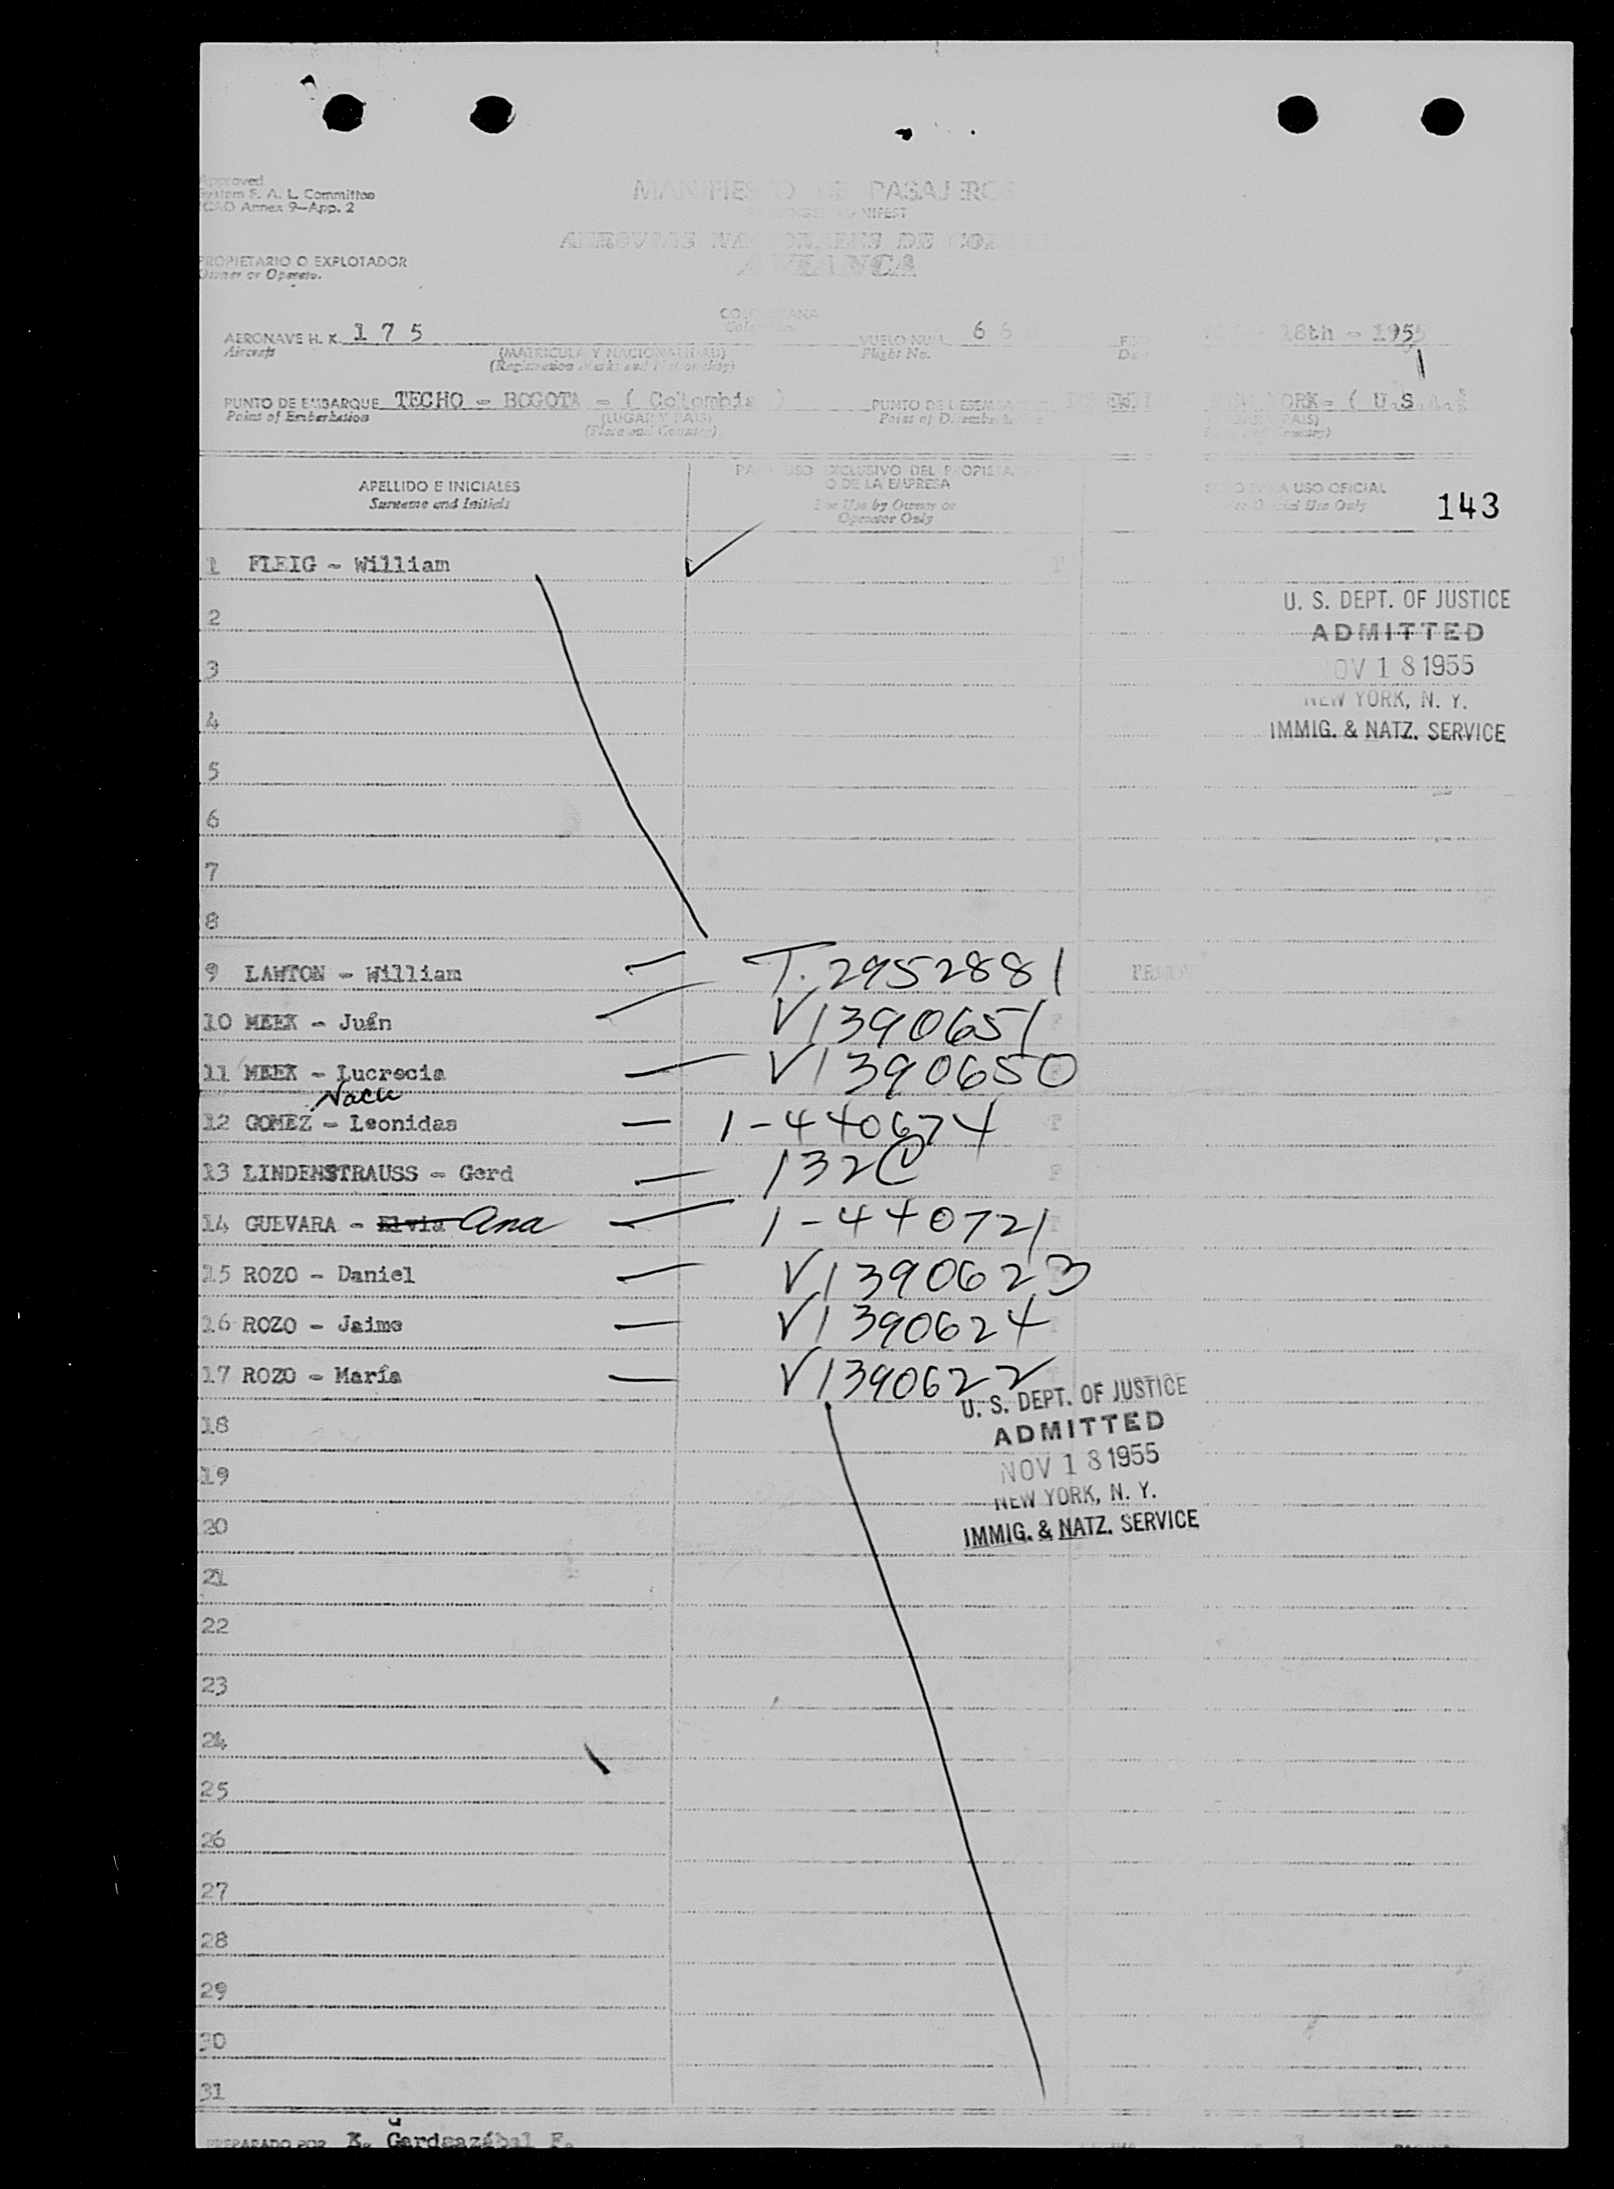 Approved
System F. A. L. Committee
ICAO Annex 9—App. 2
MANIFIESTO DE PASAJEROS
AEROVIAS NACIONALES DE
AVIANCA
PROPIETARIO O EXPLOTADOR
Owner or Operator.
COLOMBIANA
AERONAVE H. K. 1 7 5 VUELO NUM. 6 6 18th - 1955
Aircraft (MATRICULA Y NACIONALIDAD) Flight No.
(Registration Marks and Nationality)
PUNTO DE EMBARQUE TECHO - BOGOTA - ( Colombia ) PUNTO DE YORK- ( U.S.
Point of Embarkation (LUGAR Y PAIS) Point of
(Place and Country)
APELLIDO E INICIALES PARA USO EXCLUSIVO DEL PROPIETARIO USO OFICIAL
Surname and Initials O DE LA EMPRESA Use Only 143
For Use by Owner or
Operator Only
1 FLEIG - William
U. S. DEPT. OF JUSTICE
2
ADMITTED
3 NOV 18 1955
NEW YORK, N. Y.
4 IMMIG. & NATZ. SERVICE
5
6
7
8
9 LAWTON - William — T. 2952881
10 MEEK - Juán — V1390651
11 MEEK - Lucrecia — V1390650
12 GOMEZ - Leonidas — 1-440674
13 LINDENSTRAUSS - Gerd — 132C
14 GUEVARA - Elvia Ana — 1-440721
15 ROZO - Daniel — V1390623
16 ROZO - Jaime — V1390624
17 ROZO - María — V1390622
U. S. DEPT. OF JUSTICE
18 ADMITTED
19 NOV 18 1955
NEW YORK, N. Y.
20 IMMIG. & NATZ. SERVICE
21
22
23
24
25
26
27
28
29
30
31
PREPARADO POR K. Gardeazábal F.